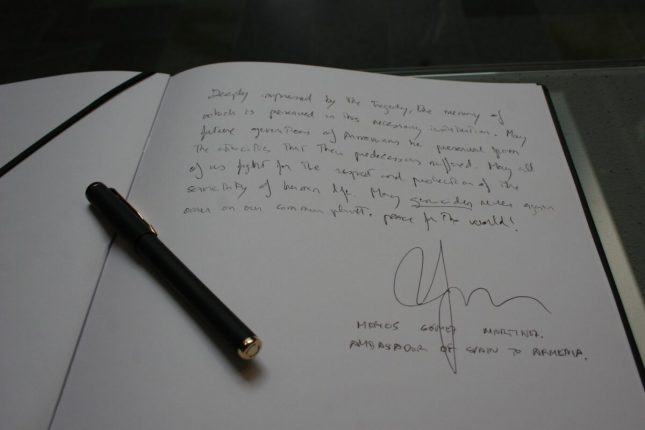 Deeply impressed by the tragedy, the memory of
which is preserved in this necessary institution. May
future generations of Armenians be preserved from
the atrocities that their predecessors suffered. May all
of us fight for the respect and protection of the
sanctity of human life. May genocides never again
occur on our common planet. peace for the world!
MARCOS GÓMEZ MARTINEZ.
AMBASSADOR OF SPAIN TO ARMENIA.